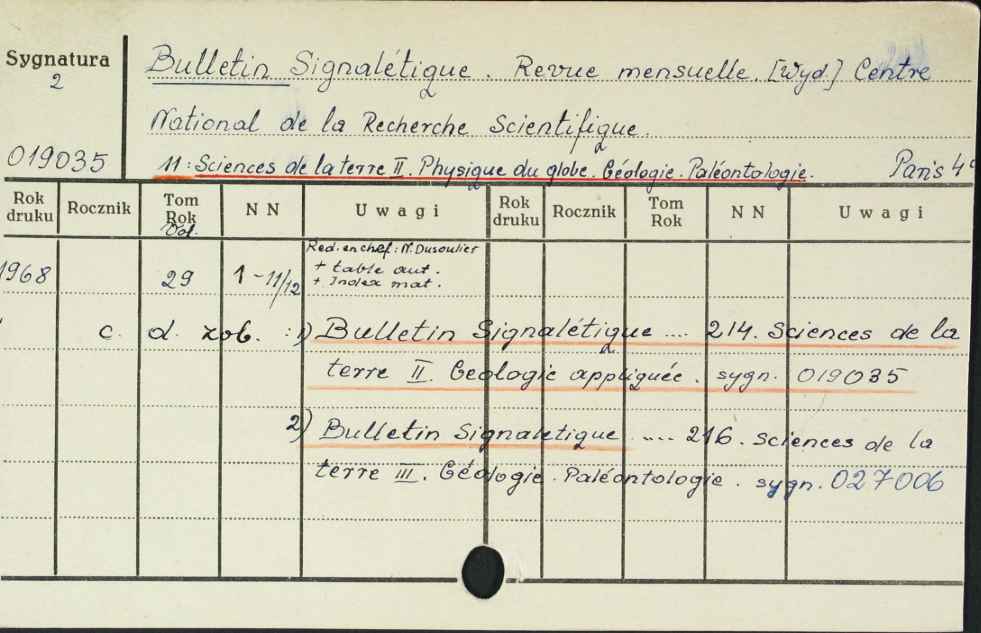 Sygnatura
2
Bulletin Signalétique. Revue mensuelle. [Wyd.] Centre
National de la Recherche Scientifique.
019035
11: Sciences de la terre II. Physique du globe. Géologie. Paléontologie. Paris 4°
Rok druku Rocznik Tom Rok Vol. N N Uwagi Rok druku Rocznik Tom Rok N N Uwagi
Red. en chef: N. Dusoulier
1968 29 1-11/12 + table aut.
+ Index mat.
c. d. zob. : 1) Bulletin Signalétique .... 214. Sciences de la
terre II. Geologie appliquée. sygn. 019035
2) Bulletin Signaletique .... 216. Sciences de la
terre III. Géologie. Paléontologie. sygn. 027006